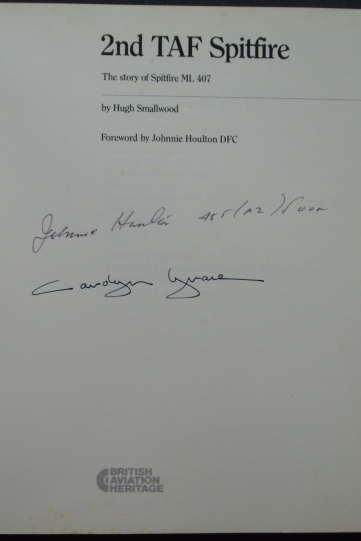 2nd TAF Spitfire
The story of Spitfire ML 407
by Hugh Smallwood
Foreword by Johnnie Houlton DFC
Johnnie Houlton 485 (NZ) Sqdn
Carolyn Grace
BRITISH
AVIATION
HERITAGE